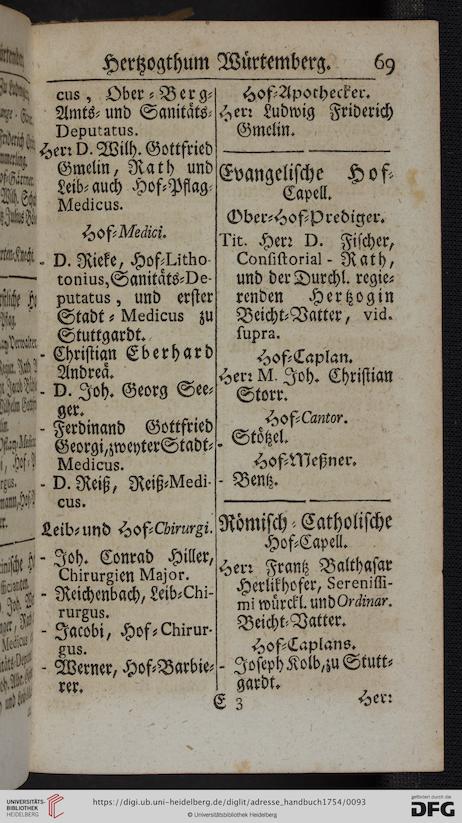 Hertzogthum Würtemberg. 69
cus, Ober-Berg-
Amts- und Sanitäts-
Deputatus.
Herr D. Wilh. Gottfried
Gmelin, Rath und
Leib- auch Hof-Pflag-
Medicus.
Hof-Medici.
- D. Rieke, Hof-Litho-
tonius, Sanitäts-De-
putatus, und erster
Stadt-Medicus zu
Stuttgardt.
- Christian Eberhard
Andreä.
- D. Joh. Georg See-
ger.
- Ferdinand Gottfried
Georgi, zweyter Stadt-
Medicus.
- D. Reiß, Reiß-Medi-
cus.
Leib- und Hof-Chirurgi.
- Joh. Conrad Hiller,
Chirurgien Major.
- Reichenbach, Leib-Chi-
rurgus.
- Jacobi, Hof-Chirur-
gus.
- Werner, Hof-Barbie-
rer.
Hof-Apothecker.
Herr Ludwig Friderich
Gmelin.
Evangelische Hof-
Capell.
Ober-Hof-Prediger.
Tit. Herr D. Fischer,
Consistorial-Rath,
und der Durchl. regie-
renden Hertzogin
Beicht-Vatter, vid.
supra.
Hof-Caplan.
Herr M. Joh. Christian
Storr.
Hof-Cantor.
- Stötzel.
Hof-Meßner.
- Bentz.
Römisch-Catholische
Hof-Capell.
Herr Frantz Balthasar
Herlikhofer, Serenissi-
mi würckl. und Ordinar.
Beicht-Vatter.
Hof-Caplans.
- Joseph Kolb, zu Stutt-
gardt.
E 3 Herr
UNIVERSITÄTS-
BIBLIOTHEK
HEIDELBERG
https://digi.ub.uni-heidelberg.de/diglit/adresse_handbuch1754/0093
© Universitätsbibliothek Heidelberg
gefördert durch die
DFG